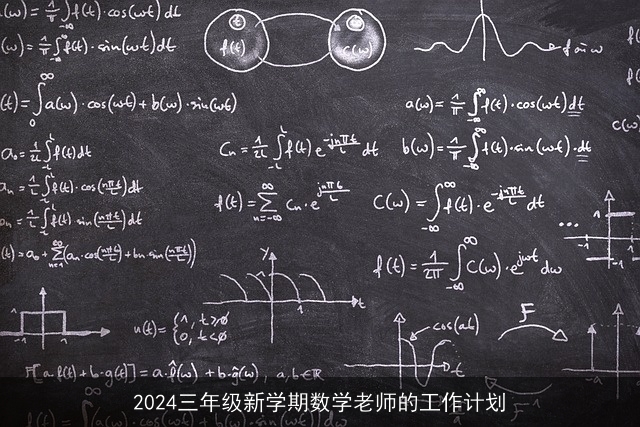 a(ω) = 1/π ∫f(t)·cos(ωt) dt
(ω) = 1/π ∫f(t)·sin(ωt) dt
f(t)
C(ω)
(t) = ∫₀^∞ a(ω)·cos(ωt) + b(ω)·sin(ωt)
a(ω) = 1/π ∫_{-∞}^{∞} f(t)·cos(ωt) dt
C(ω)
a₀ = 1/2L ∫_{-L}^{L} f(t) dt
Cn = 1/2L ∫_{-L}^{L} f(t) e^{-jnπt/L} dt
b(ω) = 1/π ∫_{-∞}^{∞} f(t)·sin(ωt)·dt
an = 1/L ∫_{-L}^{L} f(t)·cos(nπt/L) dt
f(t) = Σ_{n=-∞}^{∞} Cn·e^{jnπt/L}
C(ω) = ∫_{-∞}^{∞} f(t)·e^{-jnπt/L} dt
bn = 1/L ∫_{-L}^{L} f(t)·sin(nπt/L) dt
...
(t) = a₀ + Σ_{n=1}^{∞} (an·cos(nπt/L) + bn·sin(nπt/L))
f(t) = 1/2π ∫_{-∞}^{∞} C(ω)·e^{jωt} dω
y
1
t
1
u(t) = { 1, t≥0
0, t<0
cos(at)
F
t
F[a·f(t) + b·g(t)] = a·f̂(ω) + b·ĝ(ω), a,b∈ℝ
-a
2024三年级新学期数学老师的工作计划